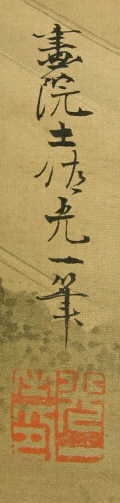 畫院土佐光一筆